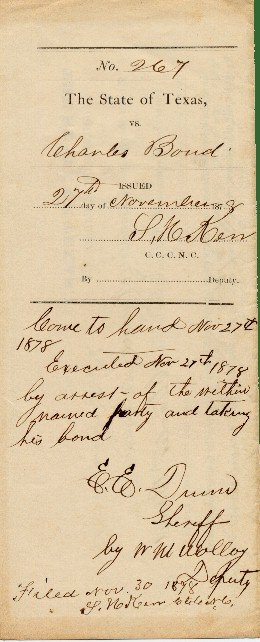 No. 267
The State of Texas,
vs.
Charles Bond.
ISSUED
27th day of November 1878
S. H. Kerr
C. C. C. N. C.
By Deputy.
Come to hand Nov 27th
1878
Executed Nov 27th 1878
by arrest of the within
named party and taking
his bond
E. E. Dunn
Sheriff
by W M
Deputy
Filed Nov. 30 1878
S. H. Kerr